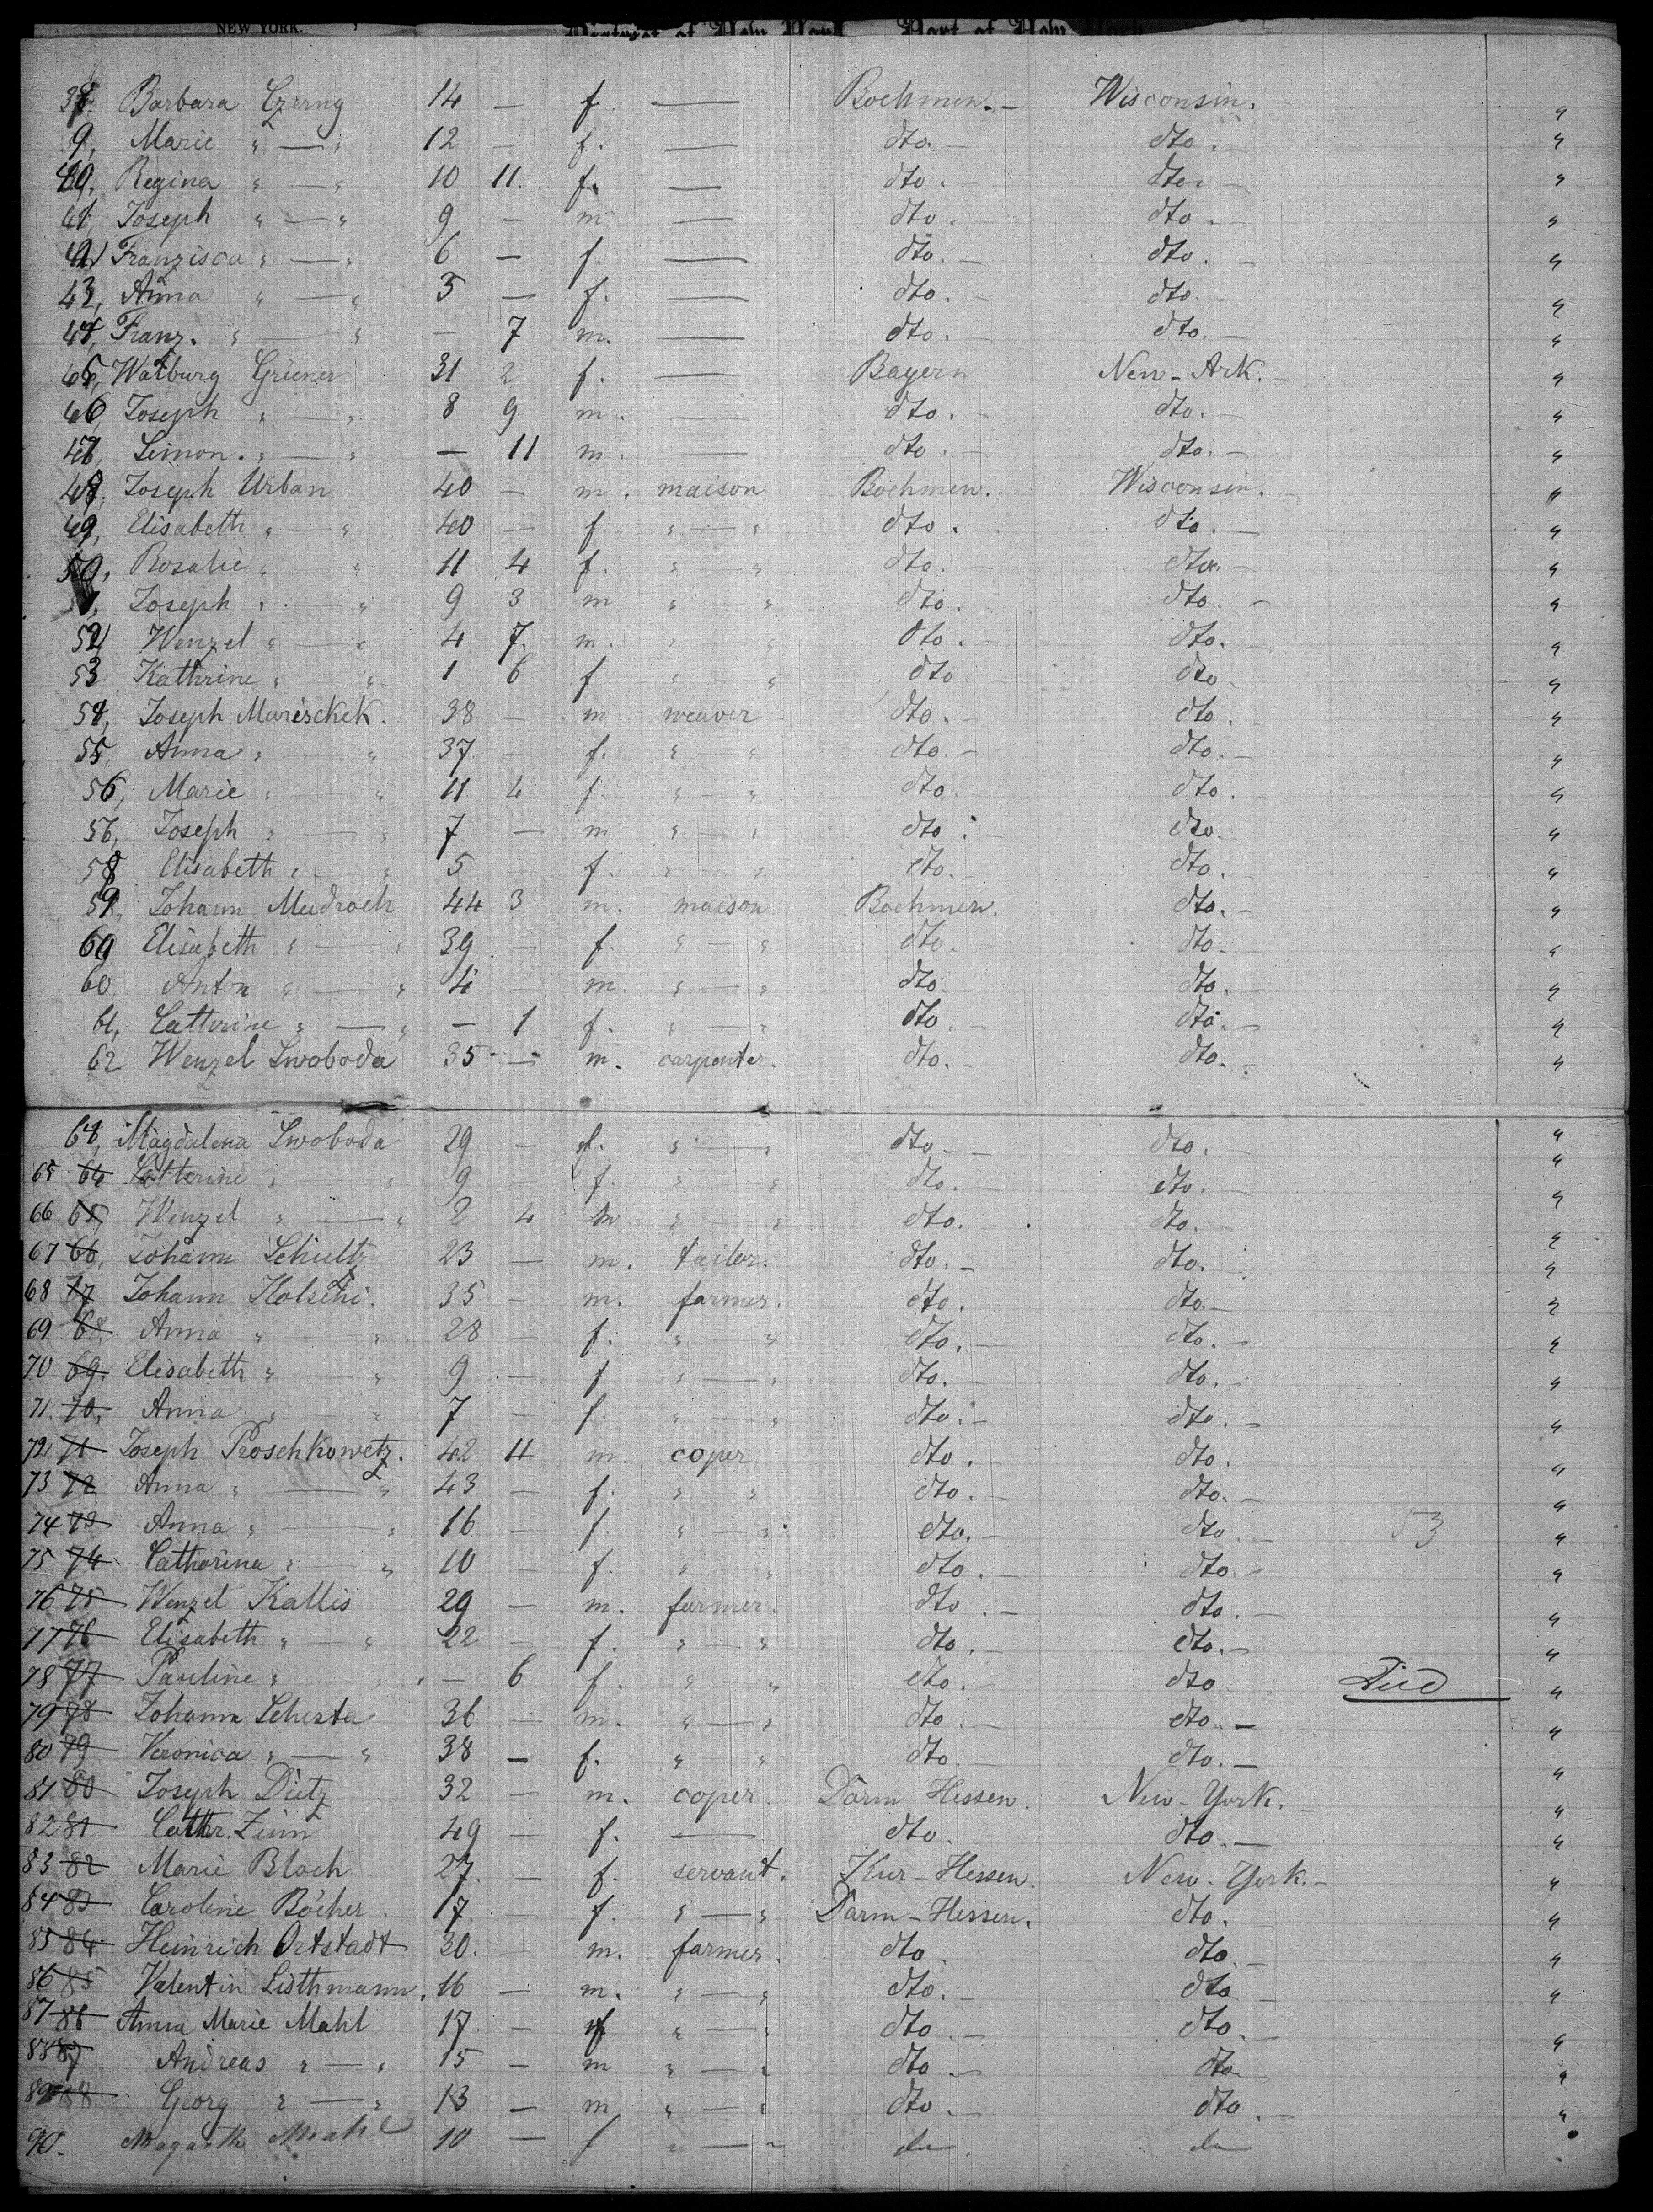 NEW YORK. District of New York Port of New York
38. Barbara Czerny 14 — f. — Boehmen. — Wisconsin. "
9, Marie " — " 12 — f. — dto. — dto. — "
40, Regina " — " 10 11. f. — dto. — dto. — "
41, Joseph " — " 9 — m — dto. dto. — "
42, Franzisca " — " 6 — f. — dto. — dto. — "
43, Anna " — " 3 — f. — dto. — dto. — "
44, Franz. " — " — 7 m. — dto. — dto. — "
45, Walburg Grüner 31 2 f. — Bayern New-Ark. — "
46, Joseph " — " 8 9 m. — dto. — dto. — "
47, Simon. " — " — 11 m. — dto. — dto. — "
48, Joseph Urban 40 — m. maison Boehmen. Wisconsin. — "
49, Elisabeth " — " 40 — f. " — " dto. dto. — "
50, Rosalie " — " 11 4 f. " — " dto. — dto. — "
Joseph " — " 9 3 m " — " dto. dto. — "
52, Wenzel " — " 4 7. m. " — " dto. — dto. — "
53 Kathrine " — " 1 6 f " — " dto. dto. "
54, Joseph Marisckek. 38 — m weaver dto. — dto. "
55, Anna " — " 37. — f. " — " dto. — dto. — "
56, Marie " — " 11. 4 f. " — " dto. dto. — "
56, Joseph " — " 7 — m " — " dto. — dto. "
58 Elisabeth " — " 5 — f. " — " dto. — dto. — "
59, Johann Mudroch 44 3 m. maison Boehmen. dto. — "
60 Elisabeth " — " 39 — f. " — " dto. — dto. "
60 Anton " — " 4 — m. " — " dto. — dto. — "
61, Catherine " — " — 1 f. " — " dto. — dto. — "
62 Wenzel Swoboda 35 — m. carpenter. dto. — dto. — "
64, Magdalena Swoboda 29 — f. " — " dto. — dto. — "
65 64 Catterine " — " 9 f. " — " dto. — dto. — "
66 65, Wenzel " — " 2 4 m " — " dto. dto. — "
67 66, Johann Schultz 23 — m. tailor. dto. — dto. — "
68 67 Johann Kolschi. 35 — m. farmer. dto. dto. — "
69 68, Anna " — " 28 — f. " — " dto. — dto. — "
70 69. Elisabeth " — " 9 — f " — " dto. — dto. — "
71. 70, Anna " — " 7 — f. " — " dto. — dto. — "
72 71 Joseph Proschkowetz. 42 11 m. coper dto. — dto. "
73 72 Anna " — " 43 — f. " — " dto. — dto. — "
74 73 Anna " — " 16 — f. " — " dto. — dto. — 53 "
75 74 Catharina " — " 10 — f. " — " dto. — dto. — "
76 75 Wenzel Kallis 29 — m. farmer. dto. — dto. — "
77 76 Elisabeth " — " 22 — f. " — " dto. — dto. — "
78 77 Pauline " — " — 6 f. " — " dto. — dto. Died "
79 78 Johann Schesta 36 — m. " — " dto. — dto. — "
80 79 Veronica " — " 38 — f. " — " dto. — dto. — "
81 80 Joseph Dietz 32 — m. coper. Darm Hessen. New-York. — "
82 81 Cathr. Zinn 49 — f. — dto. dto. — "
83 82 Marie Bloch 27. — f. servant. Kur-Hessen. New-York. — "
84 83 Caroline Böcher. 17. — f. " — " Darm-Hessen. dto. "
85 84 Heinrich Ortstadt 30. — m. farmer. dto. dto. — "
86 85 Valentin Listhmann. 16 — m. " — " dto. — dto. — "
87 86 Anna Marie Mahl 17. — f " — " dto. — dto. — "
88 87 Andreas " — " 15 — m " — " dto. — dto. "
89 88 Georg " — " 13 — m " — " dto. — dto. — "
90. Magareth Mahl 10 — f " — " do. do